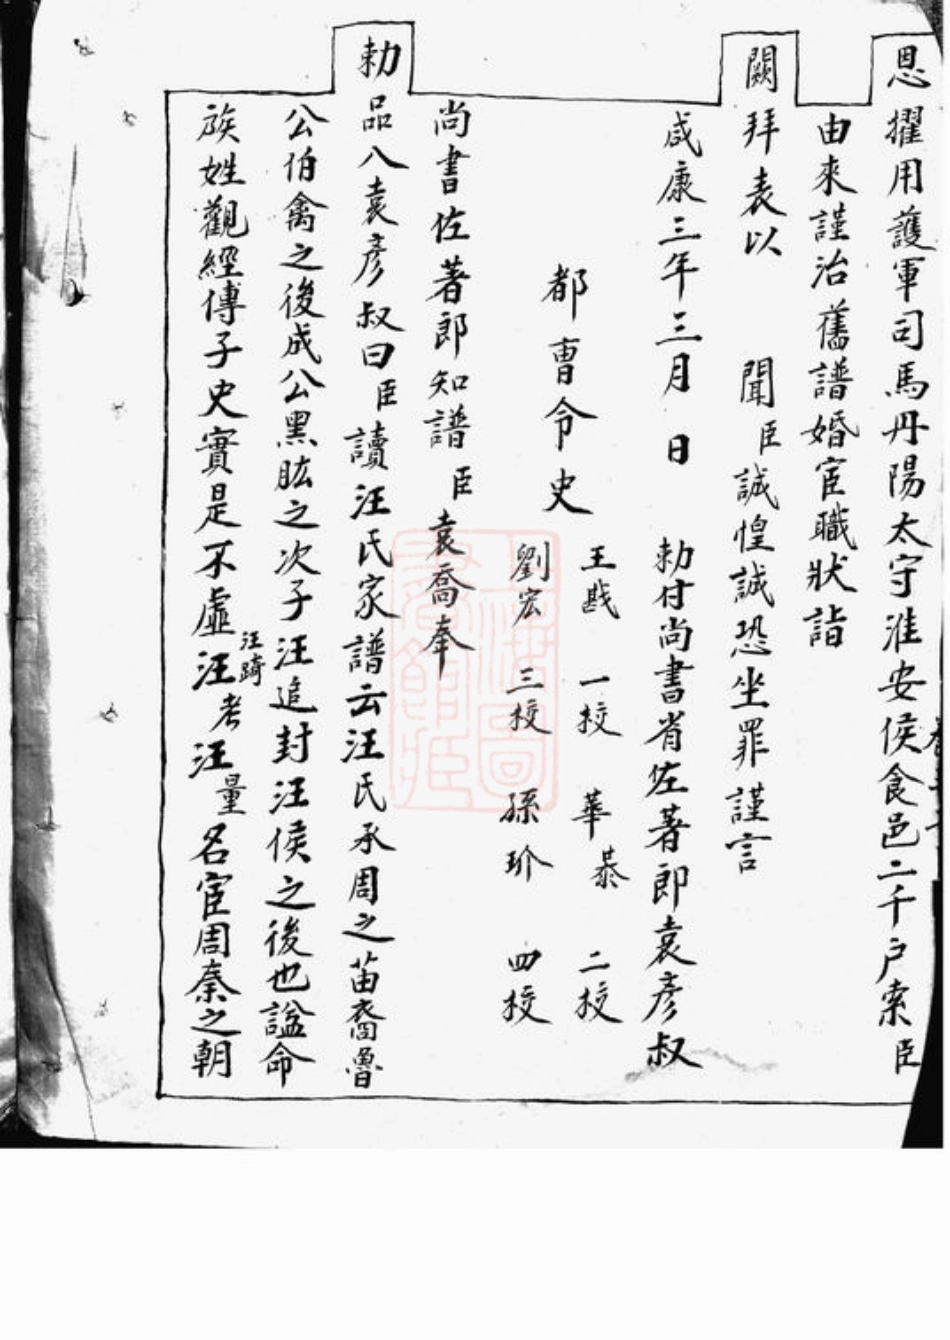 恩擢用護軍司馬丹陽太守淮安侯食邑二千户索臣
由來謹治舊譜婚宦職狀詣
闕拜表以 聞臣誠惶誠恐坐罪謹言
咸康三年三月 日 勅付尚書省佐著郎袁彥叔
都曹令史 王戡 一校 華㳟 二校
劉宏 三校 孫玠 四校
尚書佐著郎知譜臣袁喬奉
勅品八袁彥叔曰臣讀汪氏家譜云汪氏承周之苗裔魯
公伯禽之後成公黑肱之次子汪追封汪侯之後也諡命
族姓觀經傳子史實是不虛汪汪踦考汪量名宦周秦之朝